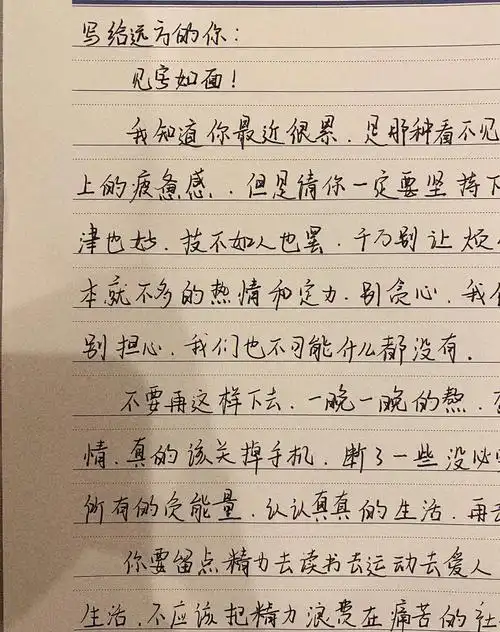 写给远方的你：
见字如面！
我知道你最近很累，是那种看不见
上的疲惫感，但是请你一定要坚持下
津也好，技不如人也罢，千万别让烦
本就不多的热情和定力，别贪心，我
别担心，我们也不可能什么都没有。
不要再这样下去，一晚一晚的熬，
情，真的该关掉手机，断了一些没必
所有的负能量，认认真真的生活，再
你要留点精力去读书去运动去爱人
生活，不应该把精力浪费在痛苦的社